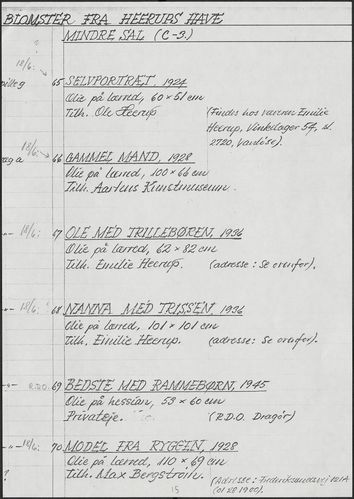 BLOMSTER FRA HEERUPS HAVE
MINDRE SAL (C-3.)
18/6:
65 SELVPORTRÆT, 1924
Olie på lærred, 60 x 51 cm
Tilh. Ole Heerup (Findes hos væren Emilie
Heerup, Vinkelager 54, st.
2720, Vanløse).
18/6:
66 GAMMEL MAND, 1928
Olie på lærred, 100 x 66 cm
Tilh. Aarhus Kunstmuseum.
-"- 18/6: 67 OLE MED TRILLEBØREN, 1936
Olie på lærred, 62 x 82 cm
Tilh. Emilie Heerup. (adresse: Se ovenfor).
-"- 18/6: 68 NANNA MED TRISSEN, 1936
Olie på lærred, 101 x 101 cm
Tilh. Emilie Heerup. (adresse: Se ovenfor).
-"- R.D.O. 69 BEDSTE MED RAMMEBØRN, 1945
Olie på hessian, 53 x 60 cm
Privateje. (R.D.O. Dragør)
-"- 18/6: 70 MODEL FRA RYGGEN, 1928
Olie på lærred, 110 x 69 cm
Tilh. Max Bergstrøm. (Adresse:
15